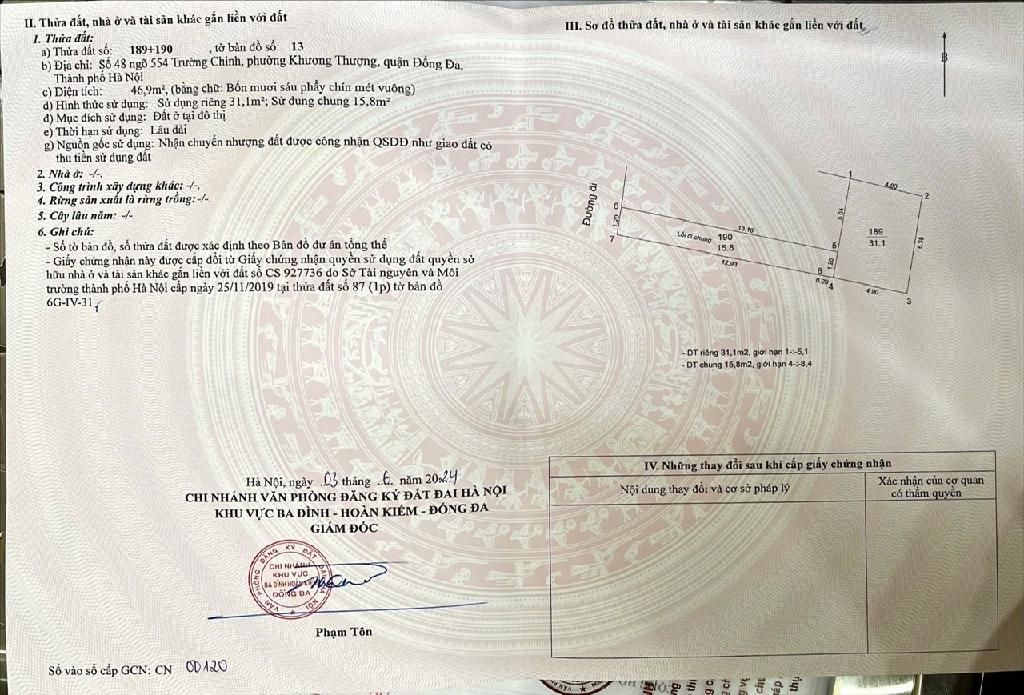 II. Thửa đất, nhà ở và tài sản khác gắn liền với đất
1. Thửa đất:
a) Thửa đất số: 189+190 , tờ bản đồ số 13
b) Địa chỉ: Số 48 ngõ 554 Trường Chinh, phường Khương Thượng, quận Đống Đa,
Thành phố Hà Nội
c) Diện tích: 46,9m², (bằng chữ: Bốn mươi sáu phẩy chín mét vuông)
d) Hình thức sử dụng: Sử dụng riêng 31,1m²; Sử dụng chung 15,8m²
đ) Mục đích sử dụng: Đất ở tại đô thị
e) Thời hạn sử dụng: Lâu dài
g) Nguồn gốc sử dụng: Nhận chuyển nhượng đất được công nhận QSDĐ như giao đất có
thu tiền sử dụng đất
2. Nhà ở: -/-.
3. Công trình xây dựng khác: -/-.
4. Rừng sản xuất là rừng trồng: -/-.
5. Cây lâu năm: -/-
6. Ghi chú:
- Số tờ bản đồ, số thửa đất được xác định theo Bản đồ dự án tổng thể
- Giấy chứng nhận này được cấp đổi từ Giấy chứng nhận quyền sử dụng đất quyền sở
hữu nhà ở và tài sản khác gắn liền với đất số CS 927736 do Sở Tài nguyên và Môi
trường thành phố Hà Nội cấp ngày 25/11/2019 tại thửa đất số 87 (1p) tờ bản đồ
6G-IV-31
Hà Nội, ngày 03 tháng 6 năm 2024
CHI NHÁNH VĂN PHÒNG ĐĂNG KÝ ĐẤT ĐAI HÀ NỘI
KHU VỰC BA ĐÌNH - HOÀN KIẾM - ĐỐNG ĐA
GIÁM ĐỐC
VĂN PHÒNG ĐĂNG KÝ ĐẤT ĐAI HÀ NỘI
CHI NHÁNH
KHU VỰC
ĐỐNG ĐA
Phạm Tôn
Số vào sổ cấp GCN: CN 00120
III. Sơ đồ thửa đất, nhà ở và tài sản khác gắn liền với đất
B
Đường đi
1
4.00
2
6
1.20
7
13.10
Lối đi chung
190
15.8
12.91
5
189
31.1
8
1.20
0.29
4
4.90
3
- DT riêng 31,1m2, giới hạn 1-:-5,1
- DT chung 15,8m2, giới hạn 4-:-8,4
IV. Những thay đổi sau khi cấp giấy chứng nhận
Nội dung thay đổi và cơ sở pháp lý
Xác nhận của cơ quan
có thẩm quyền